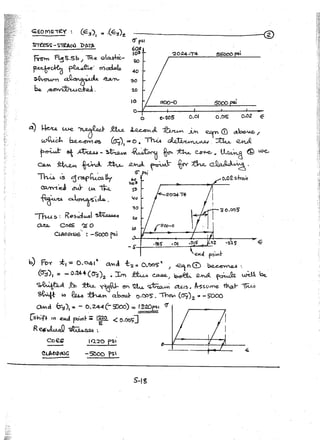 ②
GEOMETRY : (Є₃)₁ = (Є₃)₂
STRESS-STRAIN DATA
From Fig 5.5b, The elastic-
perfectly plastic models
shown alongside can
be constructed.
σ psi
60
50
40
30
20
10
0
2024-T4
56000 psi
1100-0
5000 psi
0.005
0.01
0.015
0.02 Є
a) Here we neglect the second term in eqn ① above,
which becomes (σ₃)₁ = 0. This determines the end
point of stress-strain history for the core, Using ② we
can then find the end point for the cladding.
This is graphically
carried out in the
figure alongside.
Thus: Residual stresses
are CORE ≅ 0
CLADDING : -5000 psi
σ psi
0.02 strain
2024 T4
1100-0
0.005
-.005
.01
end point
b) For t₁ = 0.041" and t₂ = 0.005", eqn ① becomes :
(σ₃)₁ = -0.244 (σ₃)₂. In this case, both end points will be
shifted to the right on the strain axis. Assume that this
shift is less than about 0.005. Then (σ₃)₂ = -5000
and (σ₃)₁ = -0.244(-5000) = 1220 psi
[shift in end point = 1220/E < 0.005]
Residual stresses :
CORE 1220 psi
CLADDING -5000 psi
σ
Є
5-18